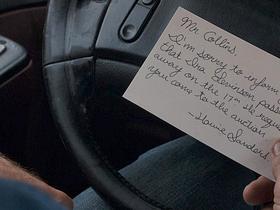 Mr. Collins
I'm sorry to inform
that Ira Levinson passed
away on the 17th. He reque
you come to the auction
- Howie Sanders